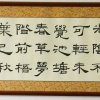 光陰不
可輕未
覺池塘
春草夢
階前梧
葉已秋